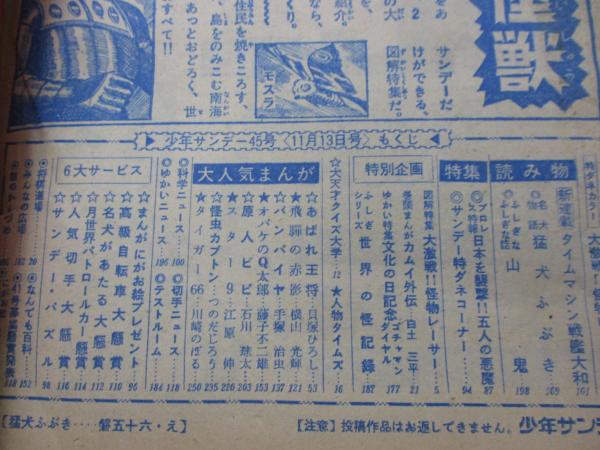 怪獣
サンデーだ
けができる、
図解特集だ。
モスラ
住民を焼きころす、
島をのみこむ南海
あっとおどろく、世
すべて!!
少年サンデー45号〈11月13日号〉もくじ
読み物
新連載 タイムマシン戦艦大和 101
名犬物語 猛犬ふぶき 109
ふしぎなふしぎな話 山鬼 198
特集
プロレス特報 日本を襲撃!!五人の悪魔 87
☆サンデー特ダネコーナー 94
特別企画
図解特集 大激戦!!怪物レーサー 5
長篇まんが カムイ外伝・白土三平 21
ゆかい特集 文化の日記念ゴチャマンダイヤル 177
ふしぎシリーズ 世界の怪記録 187
☆大天才クイズ大学 12 ★人物タイムズ 16
大人気まんが
☆あばれ王将・貝塚ひろし 53
★飛騨の赤影・横山光輝 121
☆バンパイヤ・手塚治虫 137
★オバケのQ太郎・藤子不二雄 153
☆原人ビビ・石川球太 203
★スター9・江原伸 226
☆怪虫カブトン・つのだじろう 235
★タイガー66・川崎のぼる 250
◎科学ニュース 100 ◎切手ニュース 118
◎ゆかいニュース 196 ◎テストルーム 184
6大サービス
☆まんがにがお絵プレゼント 95
★高級自転車大懸賞 110
☆名犬があたる大懸賞 112
★月世界パトロールカー懸賞 114
☆人気切手大懸賞 116
★サンデー・パズル 98
◎将棋道場 20
◎みんなの広場 182
◎なんでも百科 152
◎41号募集懸賞発表 118
【猛犬ふぶき‥‥磐五十六・え】
【注意】投稿作品はお返しできません。
少年サンデ